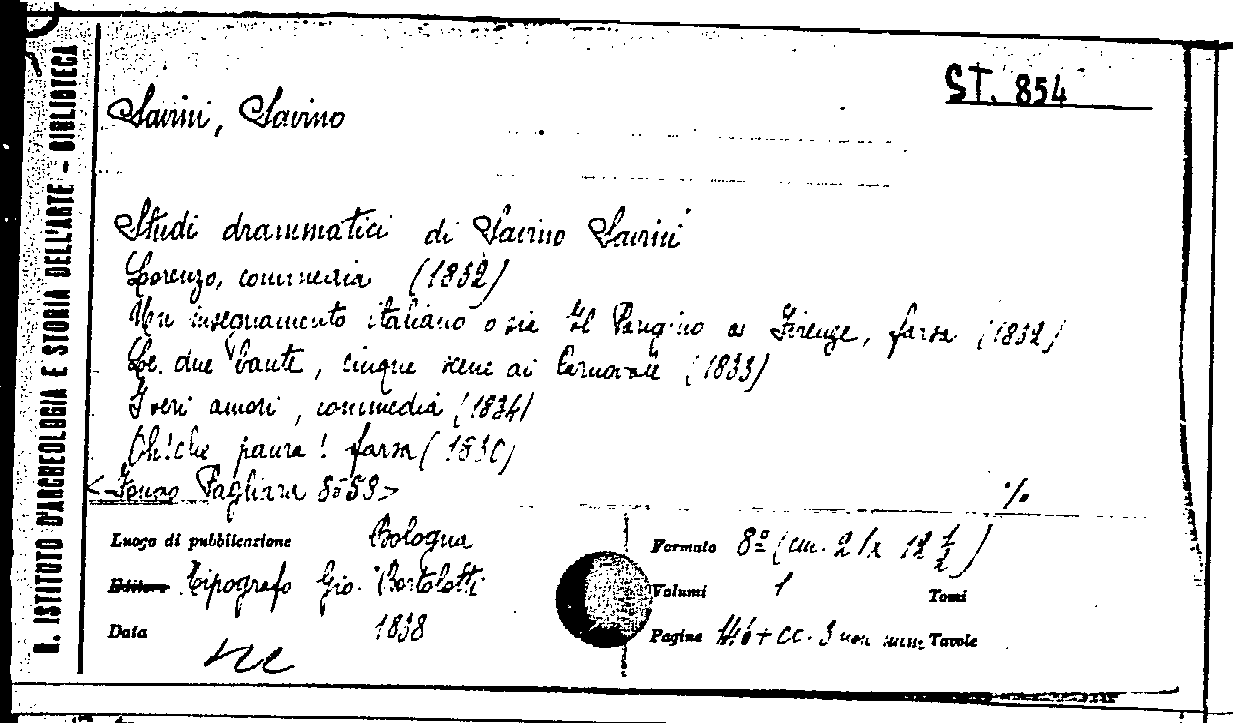 R. ISTITUTO D'ARCHEOLOGIA E STORIA DELL'ARTE - BIBLIOTECA
ST. 854
Savini, Savino
Studi drammatici di Savino Savini
Lorenzo, commedia (1832)
Un insegnamento italiano o sia Il Perugino a Firenze, farsa (1832)
Le due Dante, cinque scene di Carnovale (1833)
I veri amori, commedia (1834)
Oh! che paura! farsa (1830)
<Fondo Pagliara 8559>
%
Luogo di pubblicazione Bologna
Formato 8º (cm. 21 x 12 1/2)
Editore Tipografo Gio. Bortolotti
Volumi 1 Tomi
Data 1838
Pagine 146 + cc. 3 non num. Tavole